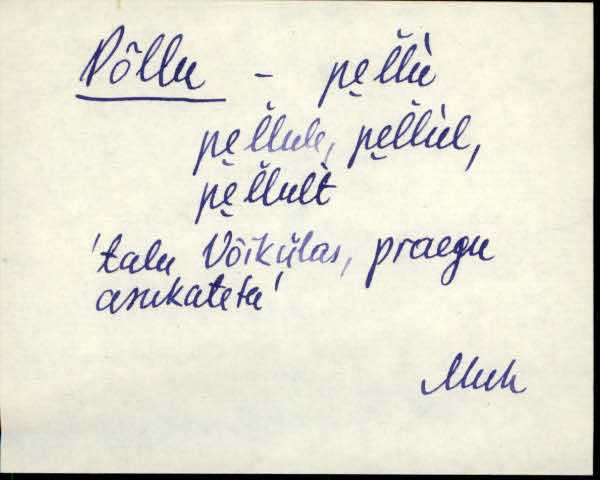 Põllu - pe̬l̆l̆ù
pe̬l̆l̆ule, pe̬l̆l̆ùl,
pe̬l̆l̆ult
'talu Võikülas, praegu
asukateta'
Muh